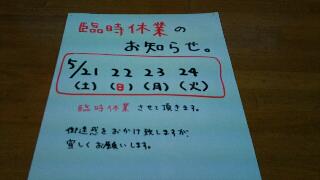 臨時休業の
お知らせ。
5/21 22 23 24
(土) (日) (月) (火)
臨時休業 させて頂きます。
御迷惑をおかけ致しますが、
宜しくお願いします。